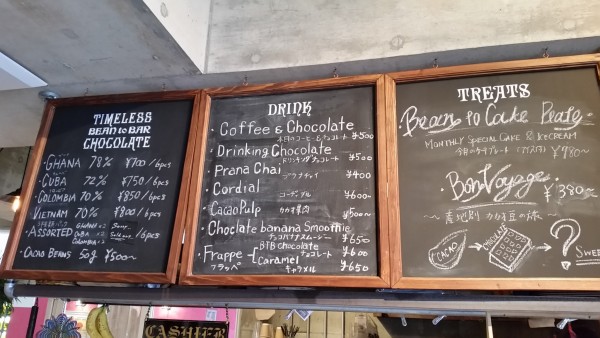 TIMELESS
BEAN to BAR
CHOCOLATE
・GHANA 78% ¥700/6pcs
・CUBA 72% ¥750/6pcs
・COLOMBIA 70% ¥850/6pcs
・VIETNAM 70% ¥800/6pcs
・ASSORTED GHANA×2 CUBA×2 COLOMBIA×2 /6pcs
・CACAO BEANS 50g ¥500～
DRINK
・Coffee & Chocolate
本日のコーヒー&チョコレート ¥500
・Drinking Chocolate
ドリンキングチョコレート ¥500
・Prana Chai
プラナチャイ ¥400
・Cordial
コーディアル ¥600
・Cacao Pulp カカオ果肉 ¥500～
・Choclate banana Smoothie
チョコバナナスムージー ¥650
・Frappe BTB chocolate チョコレート ¥600
フラッペ Caramel キャラメル ¥650
TREATS
・Bean to Cake Plate-
MONTHLY SPECIAL CAKE & ICECREAM
今月のケークプレート (アイス付) ¥980～
・Bon Voyage ¥380～
～産地別カカオ豆の旅～
CACAO
CHOCOLATE
?
SWEE
CASHIER